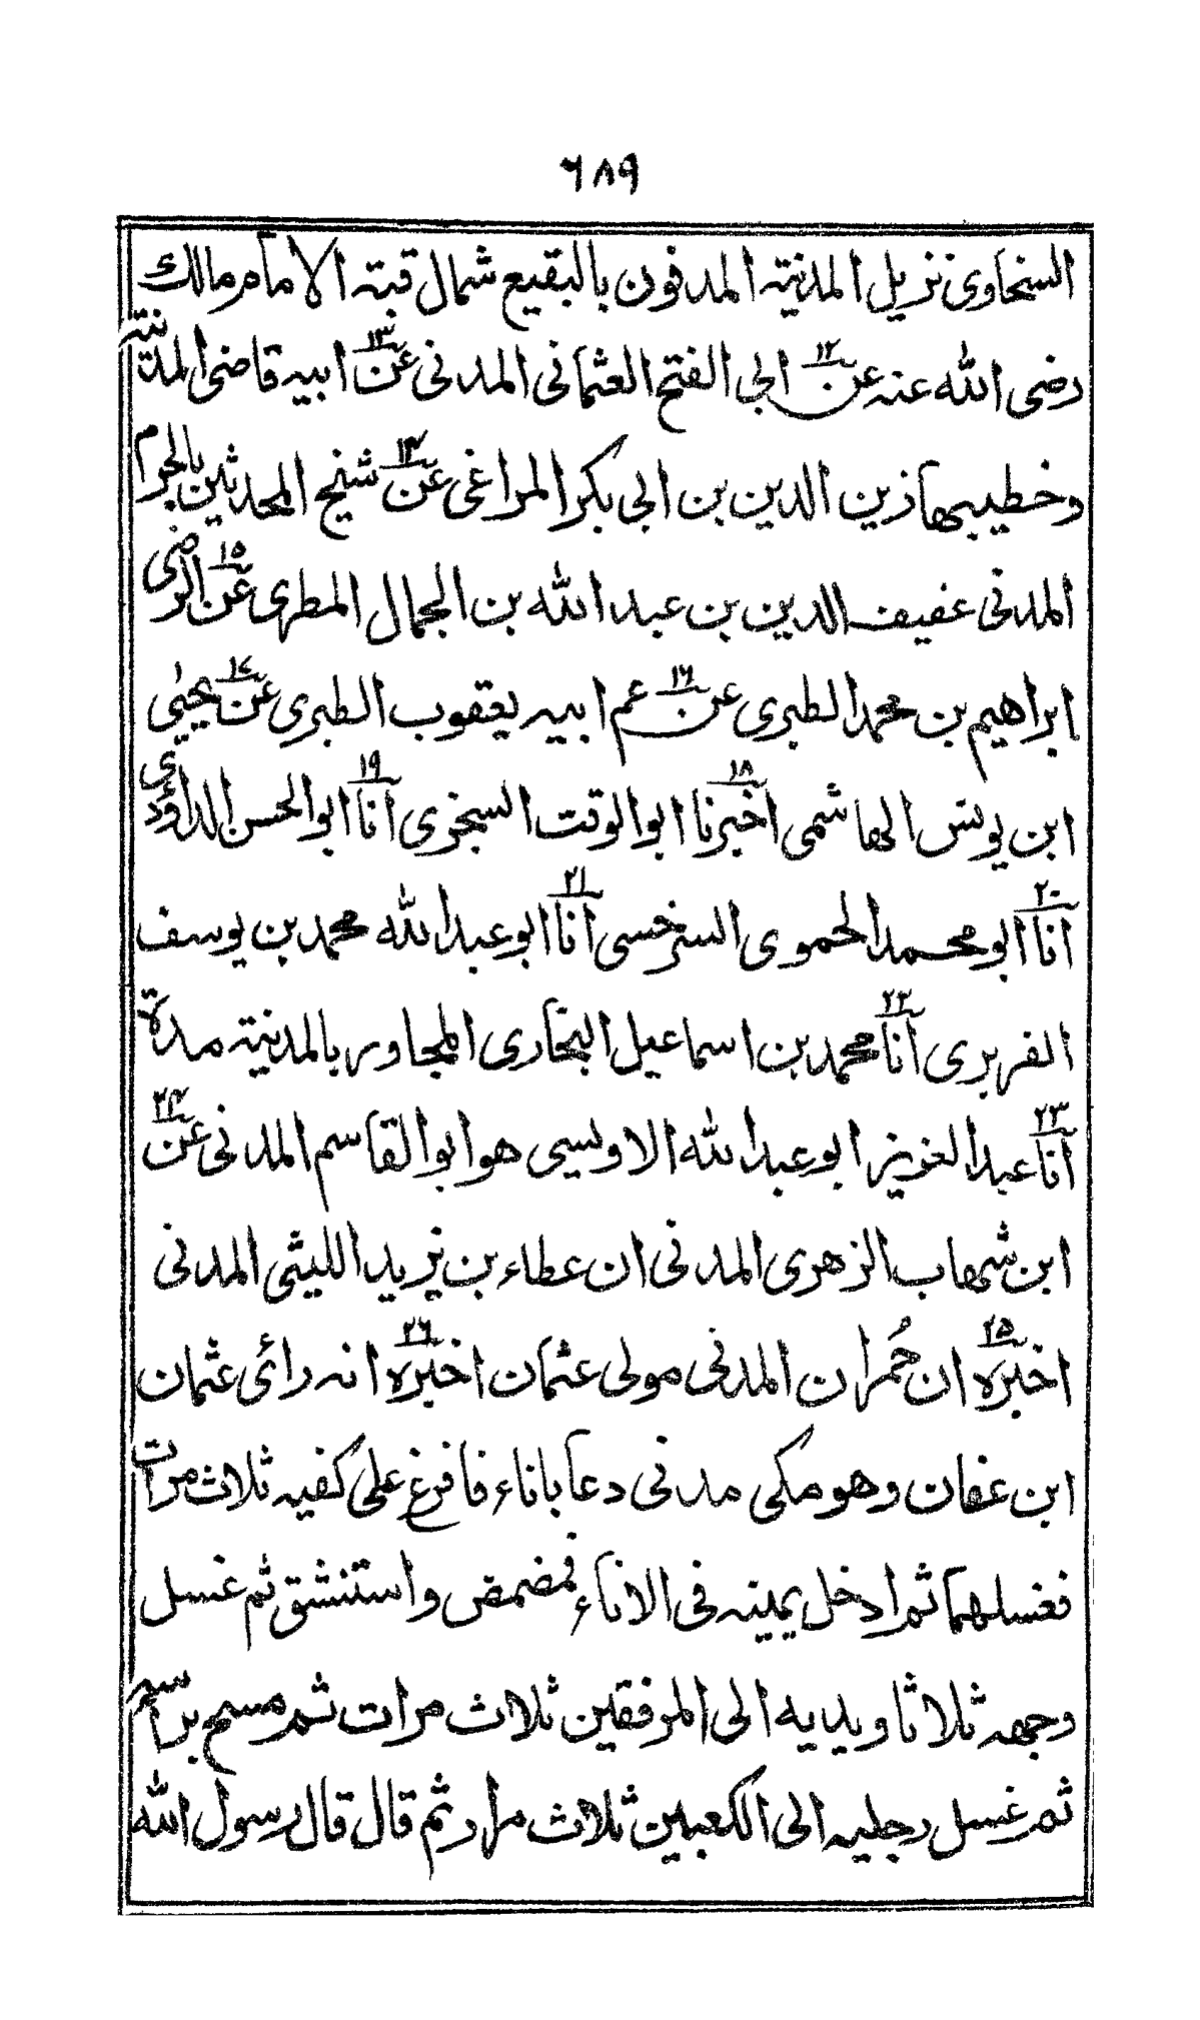 ٦٨٩
السخاوى نزيل المدنية المدفون بالبقيع شمال قبة الامام مالك
رضى الله عنه عن ١٢ ابى الفتح العثمانى المدنى عن ١٣ ابيه قاضى المدنية
وخطيبها زين الدين بن ابى بكر المراغى عن ١٤ شيخ المحدثين بالحرم
المدنى عفيف الدين بن عبد الله بن الجمال المطرى عن ١٥ الرضى
ابراهيم بن محمد الطبرى عن ١٦ عم ابيه يعقوب الطبرى عن ١٧ يحيٰى
ابن يونس الهاشمى اخبرنا ١٨ ابو الوقت السجزى انا ١٩ ابو الحسن الداؤدى
انا ٢٠ ابو محمد الحموى السرخسى انا ٢١ ابو عبد الله محمد بن يوسف
الفربرى انا ٢٢ محمد بن اسماعيل البخارى المجاور بالمدنية مدة
انا ٢٣ عبد العزيز ابو عبد الله الاويسى هو ابو القاسم المدنى عن ٢٤
ابن شهاب الزهرى المدنى ان عطاء بن يزيد الليثى المدنى
اخبره ٢٥ ان حُمران المدنى مولى عثمان اخبره ٢٦ انه رائى عثمان
ابن عفان وهو مكى مدنى دعا باناء فافرغ على كفيه ثلاث مرات
فغسلهما ثم ادخل يمينه فى الاناء فمضمض واستنشق ثم غسل
وجهه ثلاثا ويديه الى المرفقين ثلاث مرات ثم مسح براسه
ثم غسل رجليه الى الكعبين ثلاث مرار ثم قال قال رسول الله